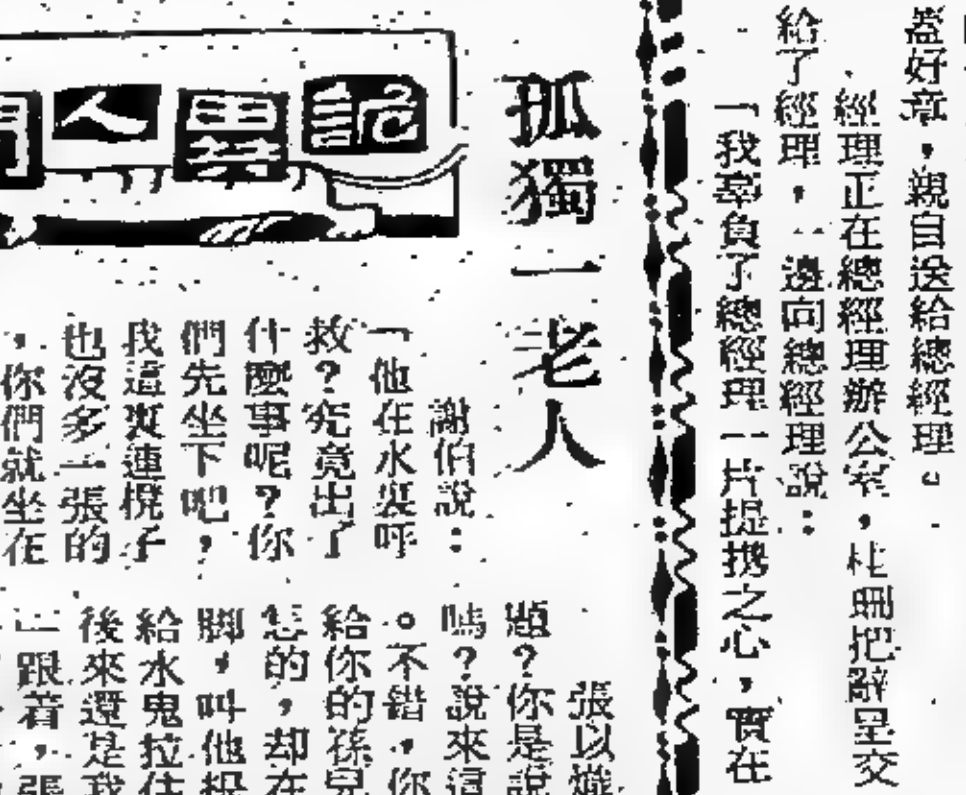 蓋好章,親自送給總經理。
經理正在總經理辦公室,杜珊把辭呈交
給了經理,一邊向總經理說:
「我辜負了總經理一片提携之心,實在
孤獨一老人
記異人
謝伯說:
「他在水裏呼
救?究竟出了
什麼事呢?你
們先坐下吧,
我這裏連櫈子
也沒多一張的
,你們就坐在
張以
題?你是說
嗎?說來這
。不錯,你
給你的孫兒
怎的,却在
脚,叫他
給水鬼拉住
後來還是我
」跟着,張